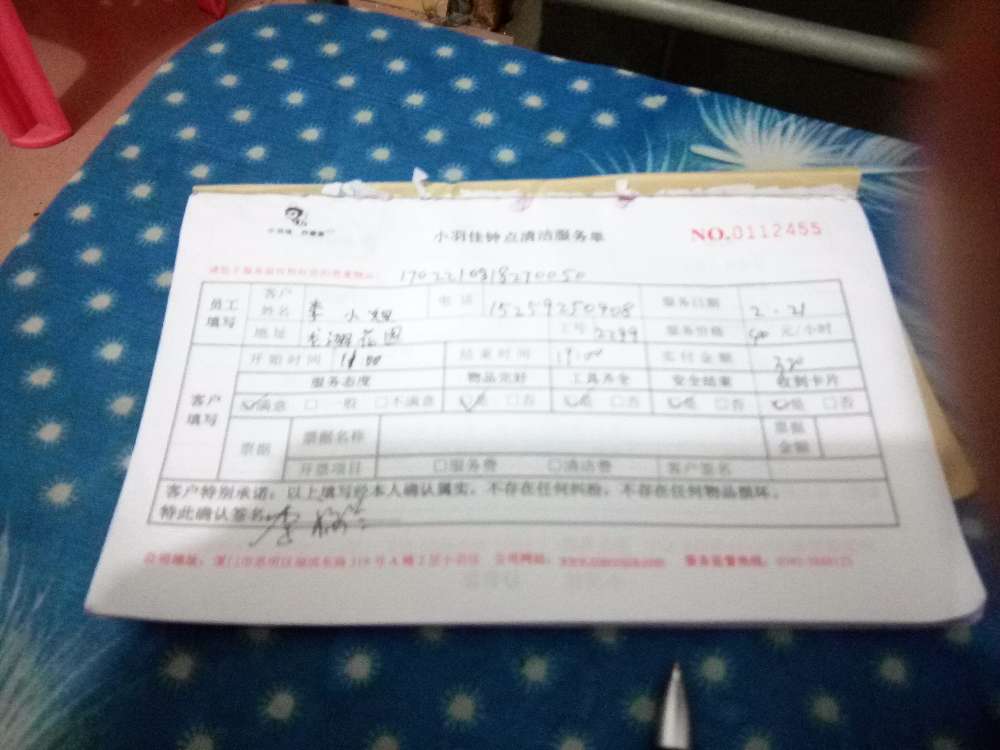 小羽佳钟点清洁服务单
NO.0112455
1702210818270050
员工填写 客户姓名 李小 电话 15259250908 服务日期 2.21
地址 花园 工号 2299 服务价格 40 元/小时
客户填写 开始时间 11:00 结束时间 19:00 实付金额 320
服务态度 物品完好 工具齐全 安全结束 收到卡片
☑满意 □一般 □不满意 ☑是 □否 ☑是 □否 ☑是 □否 ☑是 □否
票据 票据名称 票据金额
开票项目 □服务费 □清洁费 客户签名
客户特别承诺:以上填写经本人确认属实,不存在任何纠纷,不存在任何物品损坏。
特此确认签名: 李
公司地址:厦门市思明区湖滨东路319号A幢2层小羽佳 公司网站: 服务监督热线: